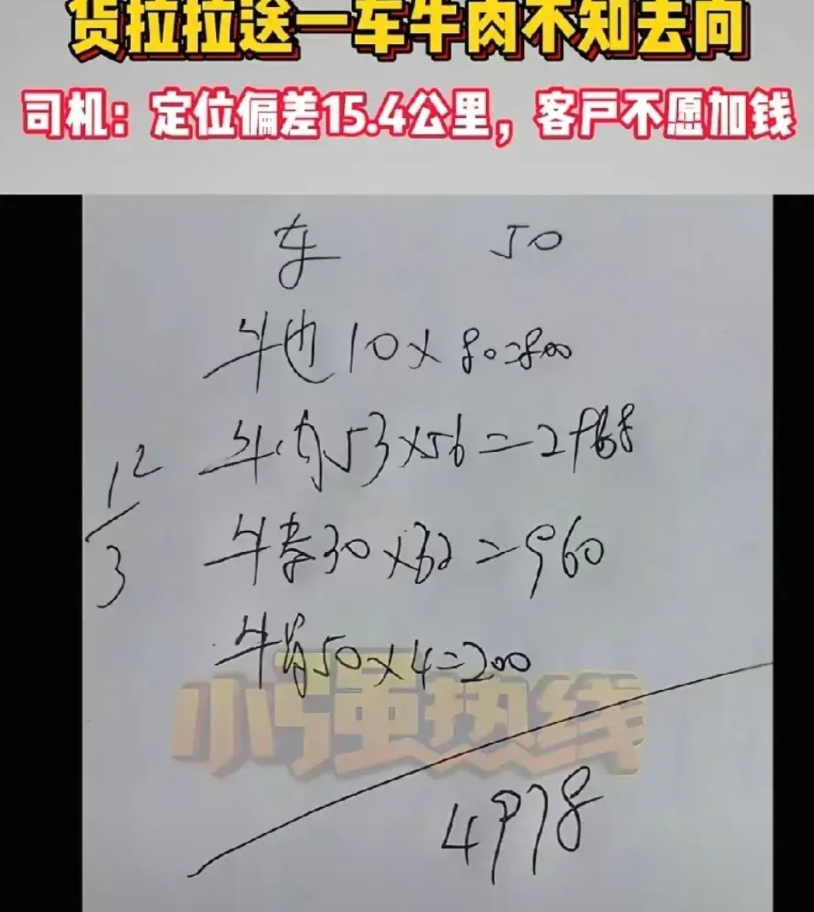 货拉拉送一车牛肉不知去向
司机：定位偏差15.4公里，客户不愿加钱
车 50
牛也10×80=800
牛肉53×56=2968
30×32=960
牛骨50×4=200
12/3
小强热线
4978